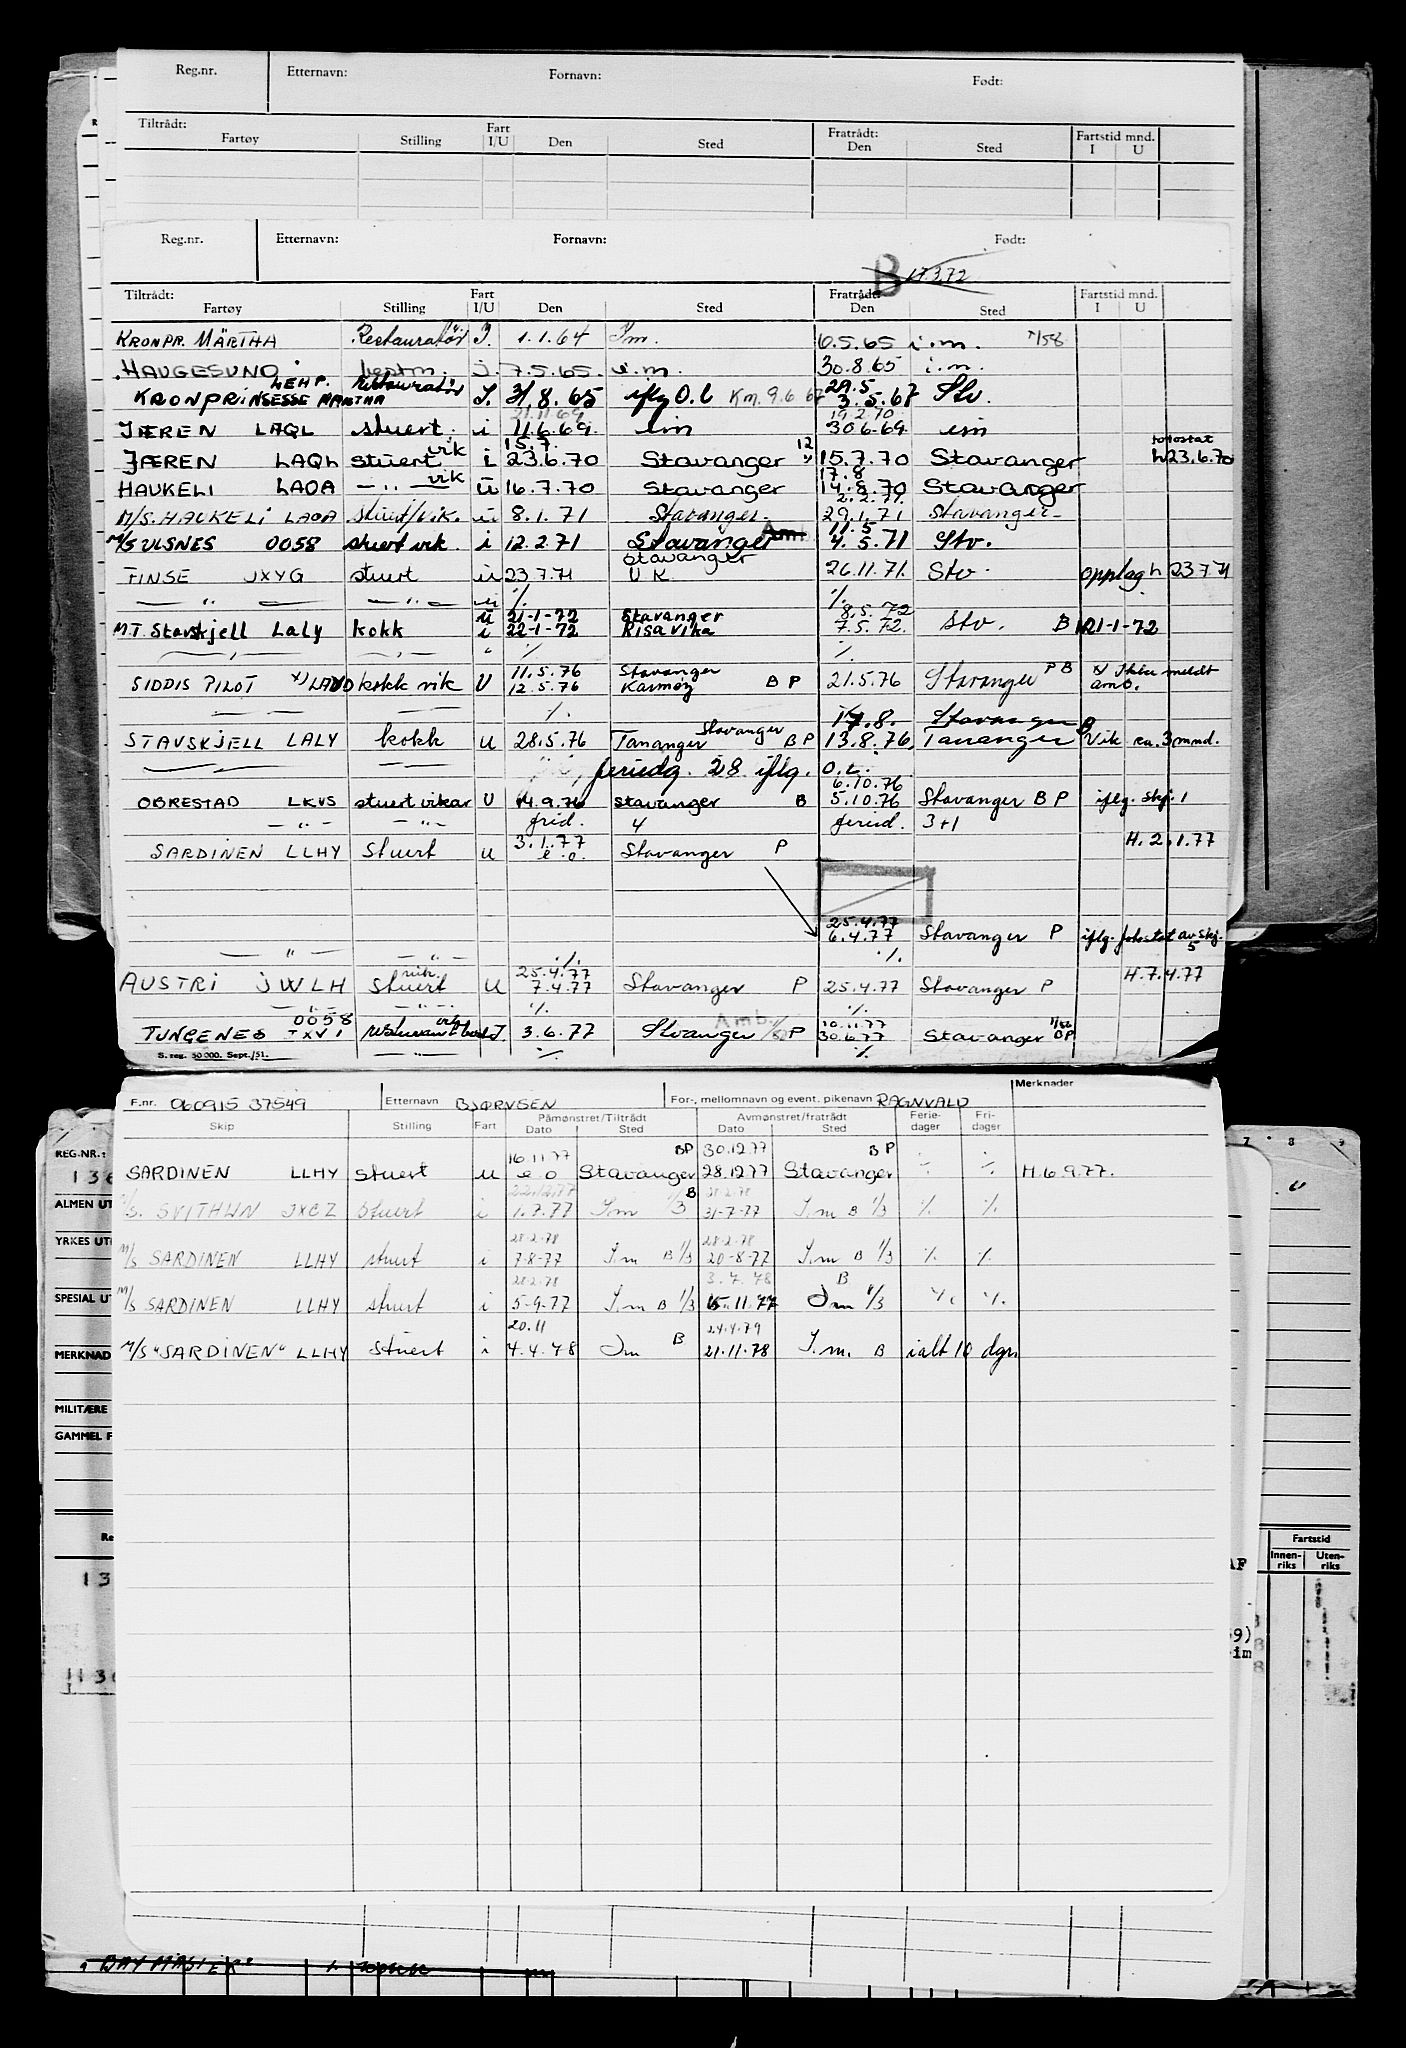 Reg.nr. Etternavn: Fornavn: Født:
Tiltrådt: Fratrådt: Fartstid mnd.
Fartøy Stilling Fart I/U Den Sted Den Sted I U
Reg.nr. Etternavn: Fornavn: Født:
B 17.3.72
Tiltrådt: Fratrådt: Fartstid mnd.
Fartøy Stilling Fart I/U Den Sted Den Sted I U
KRONPR. MÄRTHA Restauratör I. 1.1.64 I m. 6.5.65 i.m. 1/58
HAUGESUND bestm. i. 7.5.65. i.m. 30.8.65 i.m.
LEHP. restauratör 29.5
KRONPRINSESSE MARTHA I. 31.8.65 iflg O.l Km. 9.6 67 3.5.67 Stv.
21.11.69 19.2.70
JÆREN LAQL stuert. i 11.6.69. im 30.6.69. im
vik 15.7. 12 fotostat
JÆREN LAQL stuert i 23.6.70 Stavanger 15.7.70 Stavanger h23.6.70
vik 17.8
HAUKELI LAOA — " — u 16.7.70 Stavanger 14.8.70 Stavanger
2.2.71.
M/S. HAUKELI LAOA stuert/vik. u 8.1.71 Stavanger. 29.1.71 Stavanger.
Amb 11.5
M/S ULSNES 0058 stuert vik. i 12.2.71 Stavanger 4.5.71 Stv.
Stavanger
FINSE JXYG stuert u 23.7.71 U K. 26.11.71. Stv. opplag h 23.7.71
— " — — " — u % %
u 21-1-72 Stavanger 8.5.72
M.T. Stavskjell LALY kokk i 22-1-72 Risavika 7.5.72. Stv. B 21-1-72
— " — — " — " % %
11.5.76 Stavanger P B x) Ikke meldt
SIDDIS PILOT x) kokk vik U 12.5.76 Karmøy B P 21.5.76 Stavanger amb.
— — — — %.
Stavanger 17.8. Stavanger B
STAVSKJELL LALY kokk u 28.5.76 Tananger B P 13.8.76. Tananger Vik ca. 3 mnd.
— — — — feriedg. 28 iflg. O.l.
6.10.76
OBRESTAD LKVS stuert vikar U 14.9.76 Stavanger B 5.10.76 Stavanger B P iflg. skj. 1
— " — — " — frid. 4 feried. 3+1
3.1.77
SARDINEN LLHY stuert u e.o. Stavanger P H. 2.1.77
25.4.77
6.4.77 Stavanger P iflg. fotostat av skj. 5
— " — — " — % %
vik. 25.4.77 H. 7.4.77
AUSTRI JWLH stuert U 7.4.77 Stavanger P 25.4.77 Stavanger P
— " — — " — % %
0058 vik Amb. 10.11.77 1/56
TUNGENES JXVI I. 3.6.77 Stvanger P 30.6.77 Stavanger B P
S. reg. 50 000. Sept./51. — " — % %
F.nr. 060915 37549 Etternavn BJØRNSEN For-, mellomnavn og event. pikenavn RAGNVALD Merknader
Skip Stilling Fart Påmønstret/Tiltrådt Dato Sted Avmønstret/fratrådt Dato Sted Ferie-dager Fri-dager
16.11.77 BP 30.12.77 B P
SARDINEN LLHY stuert u e o Stavanger 28.12.77 Stavanger % % H. 6.9.77.
28.2.78
M/S. SVITHUN JXCZ stuert i 1.7.77 I m B 1/3 31-7-77 I. m B 1/3 % %
28.2.78 28.2.78
M/S SARDINEN LLHY stuert i 7-8-77 I. m B 1/3 20-8-77 I. m B 1/3 % %
28.2.78 3.7.78 B
M/S SARDINEN LLHY stuert i 5-9-77 I. m B 1/3 15.11.77 I m 1/3 % %
20.11 24.4.79
M/S "SARDINEN" LLHY stuert i 4.4.78 I m B 21.11.78 I. m. B ialt 10 dgr.
REG.NR.:
136
ALMEN UT
YRKES UT
SPESIAL UT
MERKNAD
MILITÆRE
GAMMEL F
Re
13
1136
7 8 9
Fartstid
Innen-riks Uten-riks
AF
9)
im
"BAY MASTER"